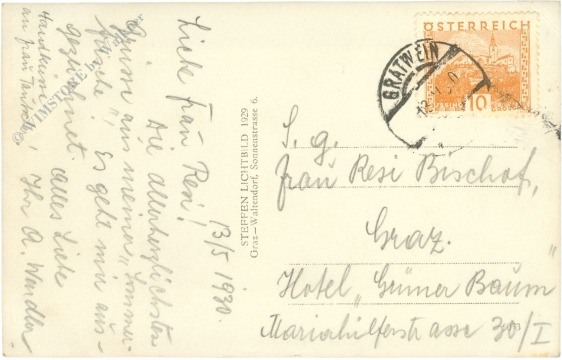 13/5 1930.
Liebe Frau Resi!
Die allerherzlichsten
Grüße aus meiner „Sommer-
frische". Es geht mir aus-
gezeichnet. Alles Liebe
Ihr A. Wendler
Handkuss
an Frau
STEFFEN LICHTBILD 1929
Graz—Waltendorf, Sonnenstrasse 6.
ÖSTERREICH
10
GRATWEIN
S. g.
Frau Resi Bischof,
Graz.
Hotel „Grüner Baum"
Mariahilferstrasse 30/I